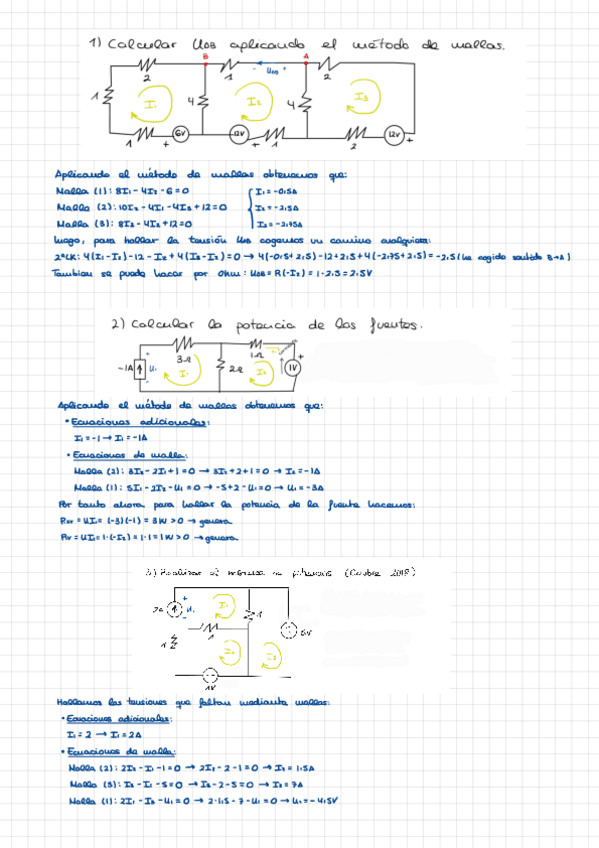 1) Calcular UAB aplicando el método de mallas.
B
A
2
1
- UAB +
2
1
I1
4
I2
4
I3
1
6V
+
12V
+
1
2
12V
+
Aplicando el método de mallas obtenemos que:
Malla (1): 8I1 - 4I2 - 6 = 0
I1 = -0,5A
Malla (2): 10I2 - 4I1 - 4I3 + 12 = 0
I2 = -2,5A
Malla (3): 8I3 - 4I2 + 12 = 0
I3 = -2,75A
Luego, para hallar la tensión UAB cogemos un camino cualquiera:
2ªLK: 4(I1-I2) - 12 - I2 + 4(I3-I2) = 0 → 4(-0,5+2,5) - 12 + 2,5 + 4(-2,75+2,5) = -2,5 (he cogido sentido B→A)
Tambien se puede hacer por Ohm: UAB = R(-I2) = 1·2,5 = 2,5V
2) Calcular la potencia de las fuentes.
3Ω
1Ω
+
-1A
U1
I1
2Ω
I2
1V
Aplicando el método de mallas obtenemos que:
• Ecuaciones adicionales:
I1 = -1 → I1 = -1A
• Ecuaciones de malla:
Malla (2): 3I2 - 2I1 + 1 = 0 → 3I2 + 2 + 1 = 0 → I2 = -1A
Malla (1): 5I1 - 2I2 - U1 = 0 → -5 + 2 - U1 = 0 → U1 = -3A
Por tanto ahora para hallar la potencia de la fuente hacemos:
= UI1 = (-3)(-1) = 3W > 0 → genera
P1V = UI2 = 1·(-I2) = 1·1 = 1W > 0 → genera
3) Realizar el balance de potencia (Octubre 2018)
+
U1
I1
1
1
I2
I3
1
1V
Hallamos las tensiones que faltan mediante mallas:
• Ecuaciones adicionales:
I1 = 2 → I1 = 2A
• Ecuaciones de malla:
Malla (2): 2I2 - I1 - 1 = 0 → 2I2 - 2 - 1 = 0 → I2 = 1,5A
Malla (3): I3 - I1 - 5 = 0 → I3 - 2 - 5 = 0 → I3 = 7A
Malla (1): 2I1 - I3 - U1 = 0 → 2·1,5 - 7 - U1 = 0 → U1 = -4,5V